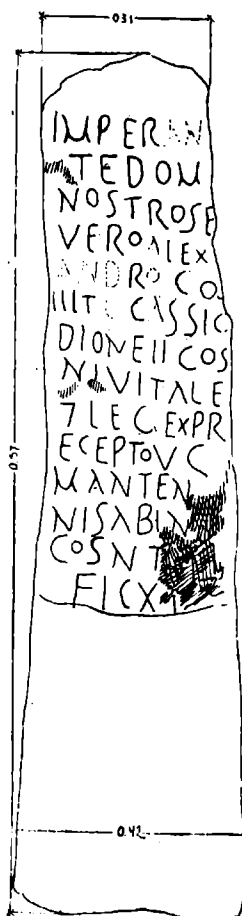 031
IMPERAN
TEDOM
NOSTROSE
VEROALEX
ANDROCO
IIIT CASSIC
DIONEIICOS
NIVITALE
7LEC.EXPR
ECEPTOVC
MANTEN
NISABIN
COSNT
FICX
0.97
0.42